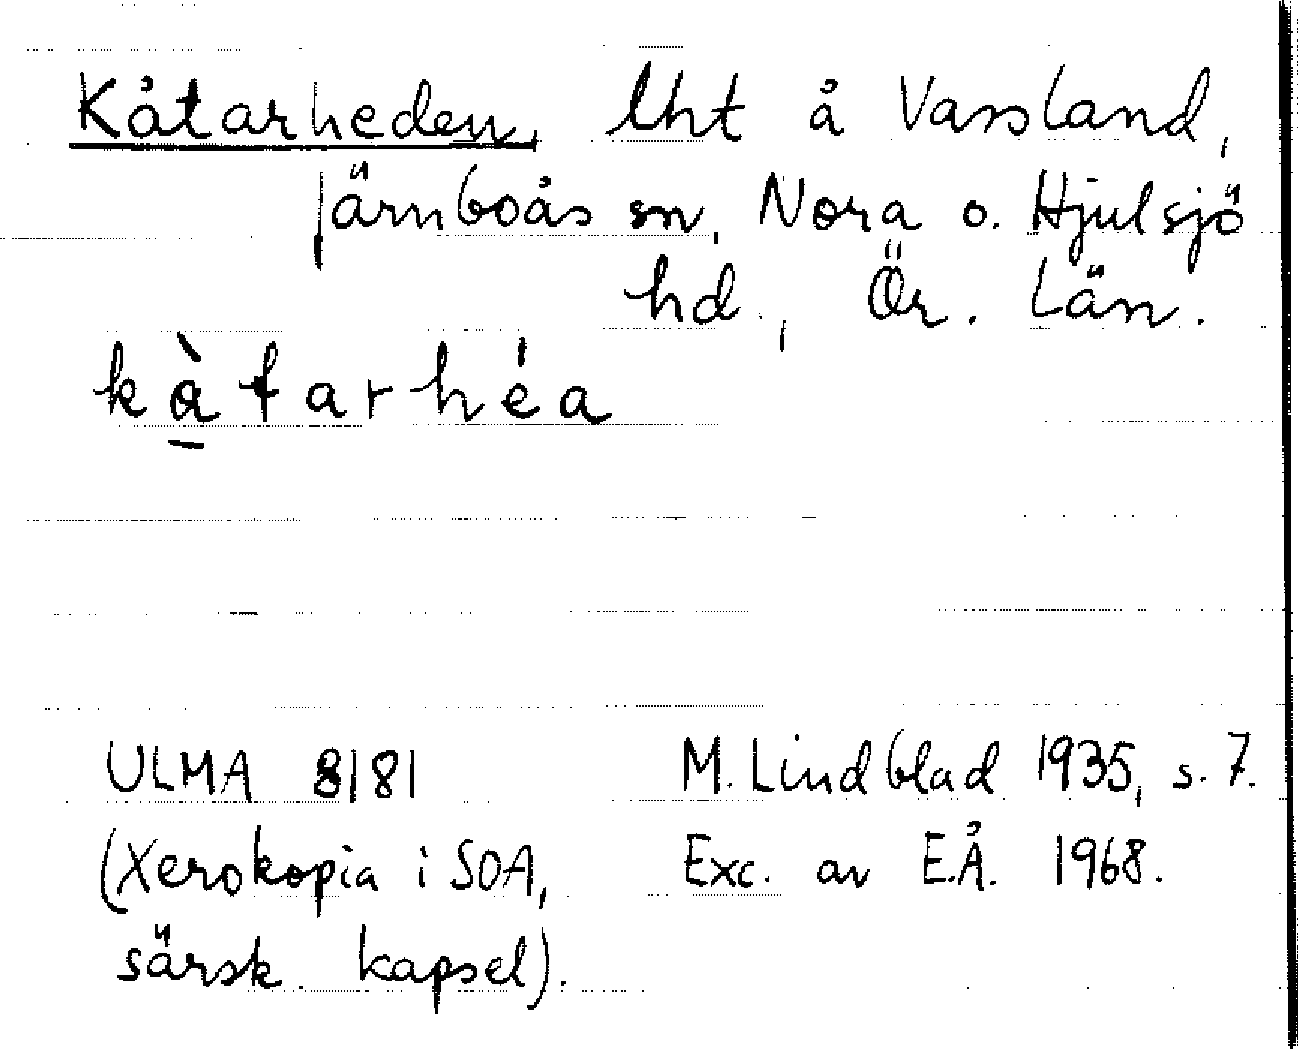 Kåtarheden, lht å Vassland,
Järnboås sn, Nora o. Hjulsjö
hd., Ör. Län.
kàtarhéa
ULMA 8181 M. Lindblad 1935, s. 7.
(Xerokopia i SOA, Exc. av E.Å. 1968.
särsk. kapsel).